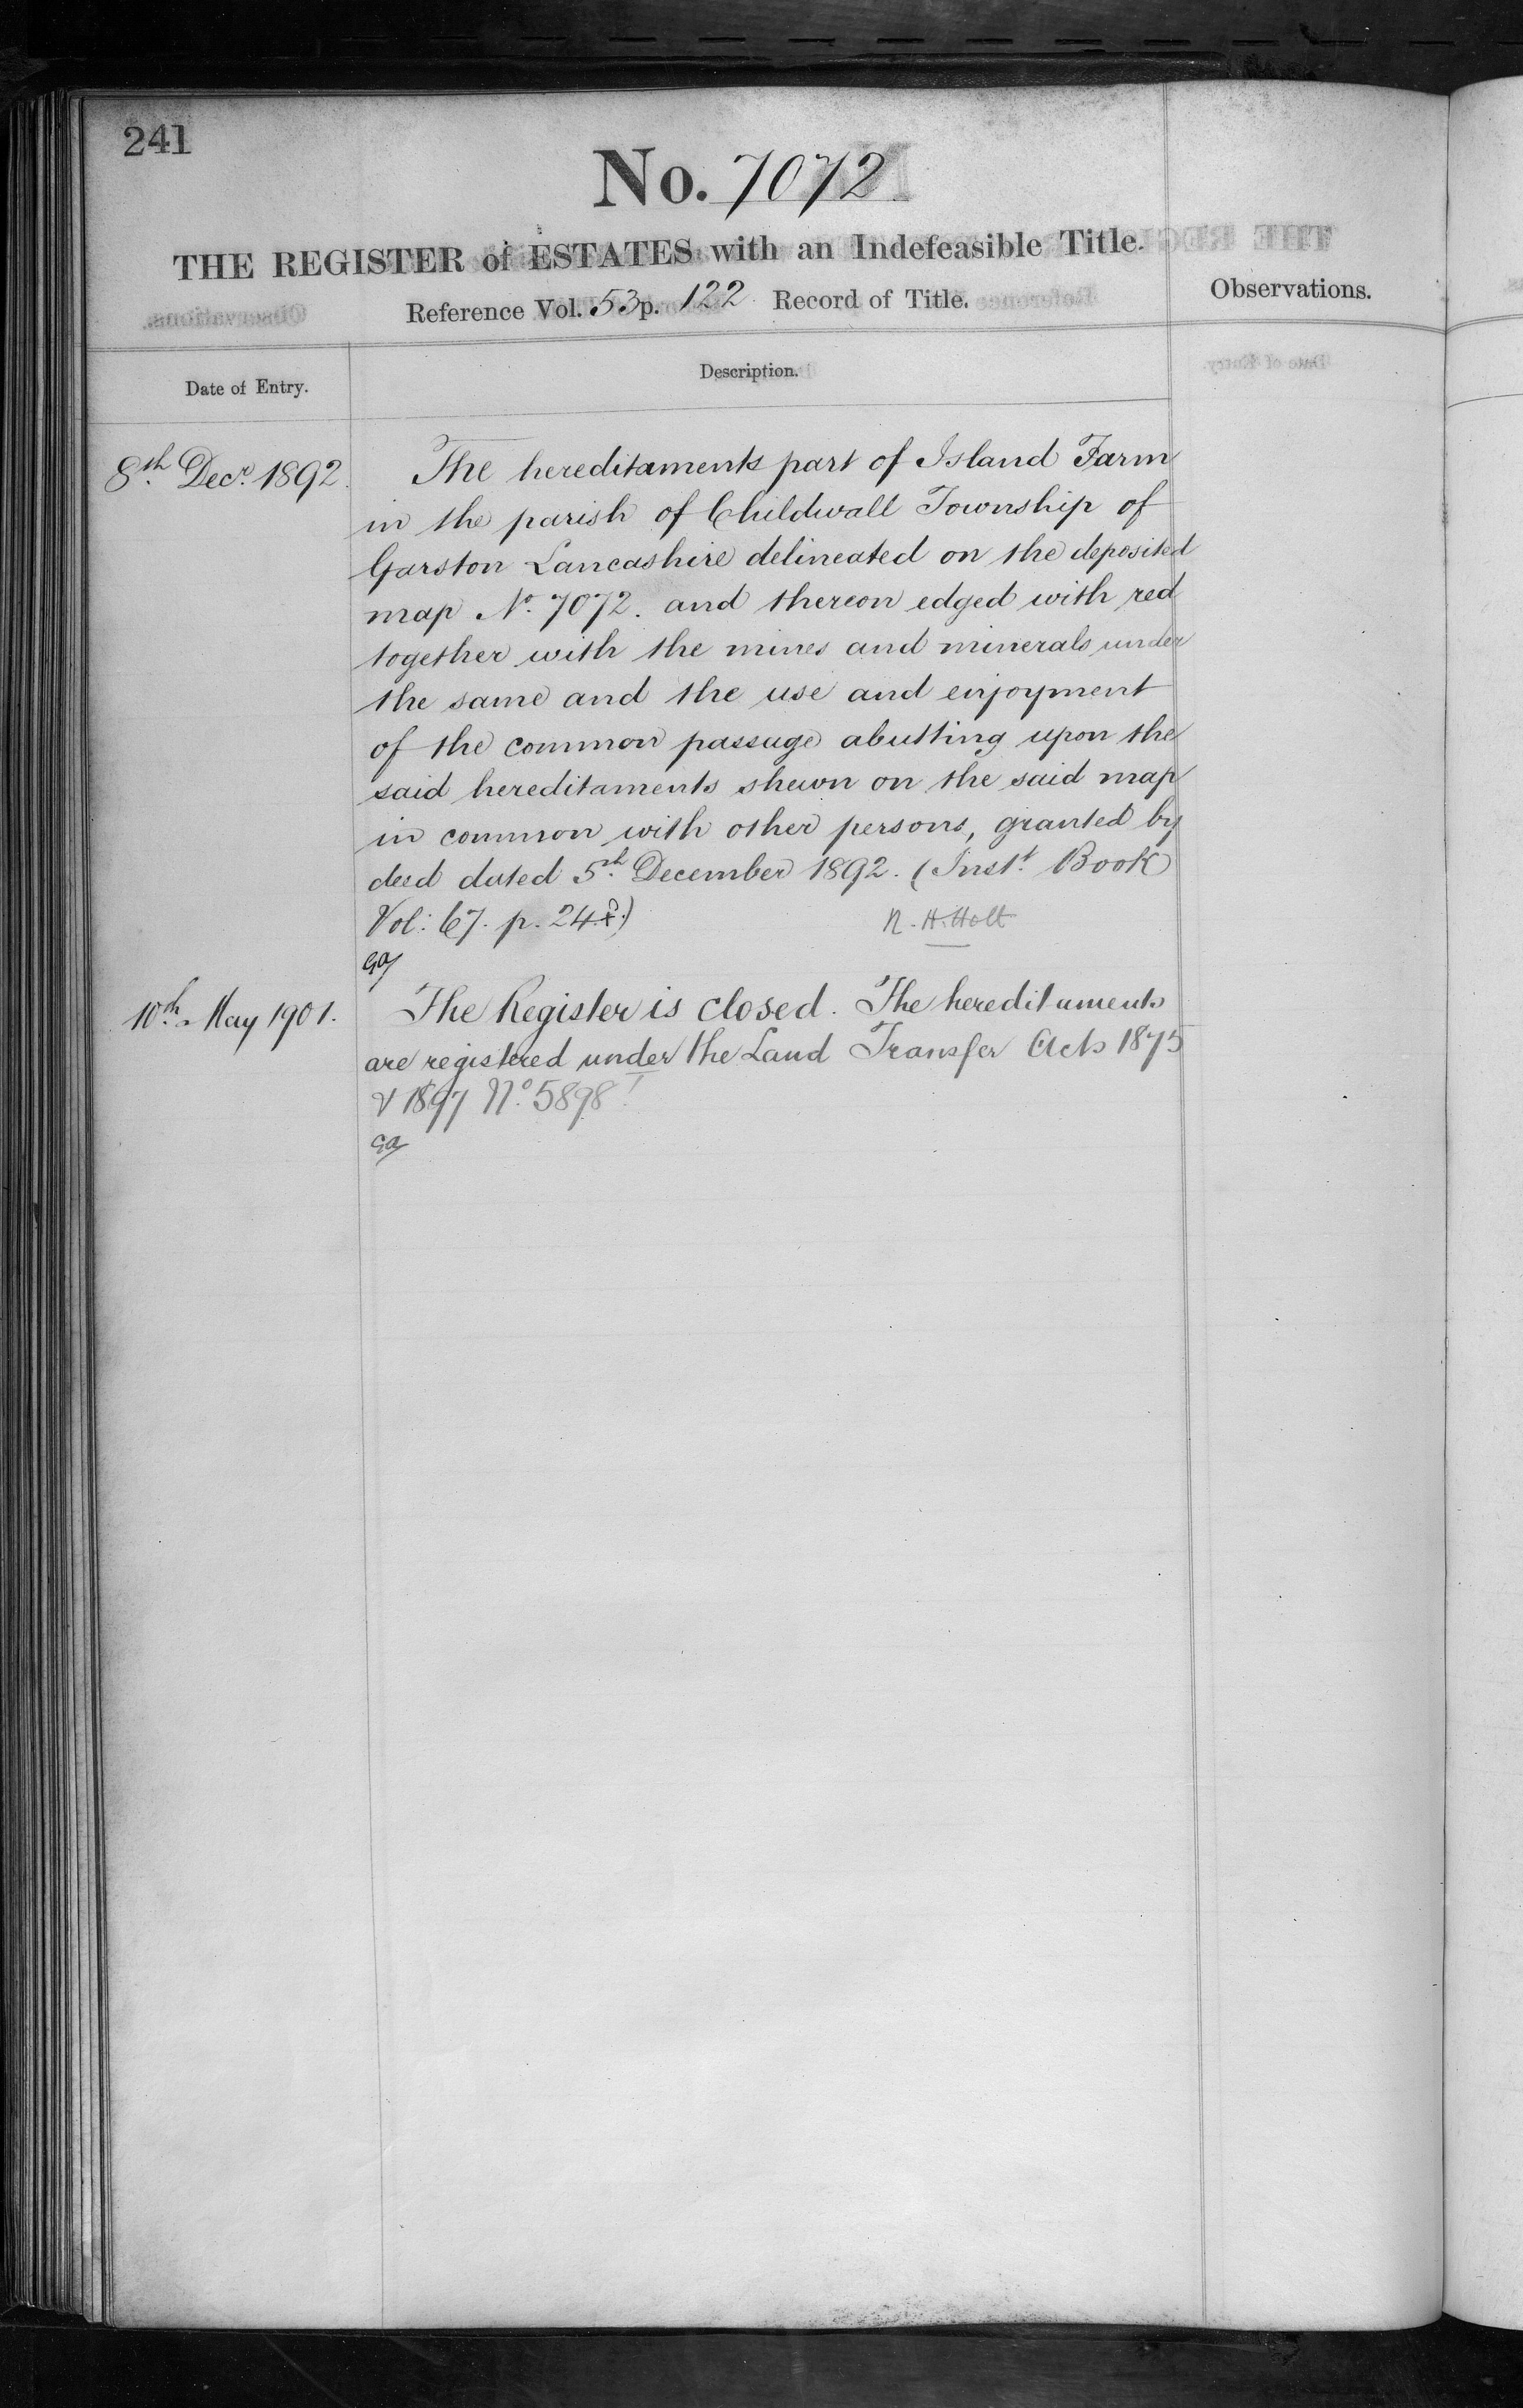 241
No. 7072
THE REGISTER of ESTATES with an Indefeasible Title.
Reference Vol. 53 p. 122 Record of Title.
Observations.
Date of Entry.
Description.
8th Decr. 1892.
The hereditaments part of Island Farm
in the parish of Childwall Township of
Garston Lancashire delineated on the deposited
map No. 7072. and thereon edged with red
together with the mines and minerals under
the same and the use and enjoyment
of the common passage abutting upon the
said hereditaments shewn on the said map
in common with other persons, granted by
deed dated 5th December 1892. (Inst. Book
Vol: 67. p. 24
N. H. Holt
10th May 1901.
The Register is closed. The hereditaments
are registered under the Land Transfer Acts 1875
& 1897 No. 5898